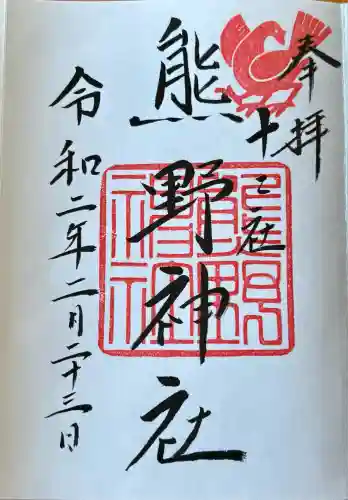 奉拝
十二社
熊野神社
熊野神社
令和二年二月二十三日